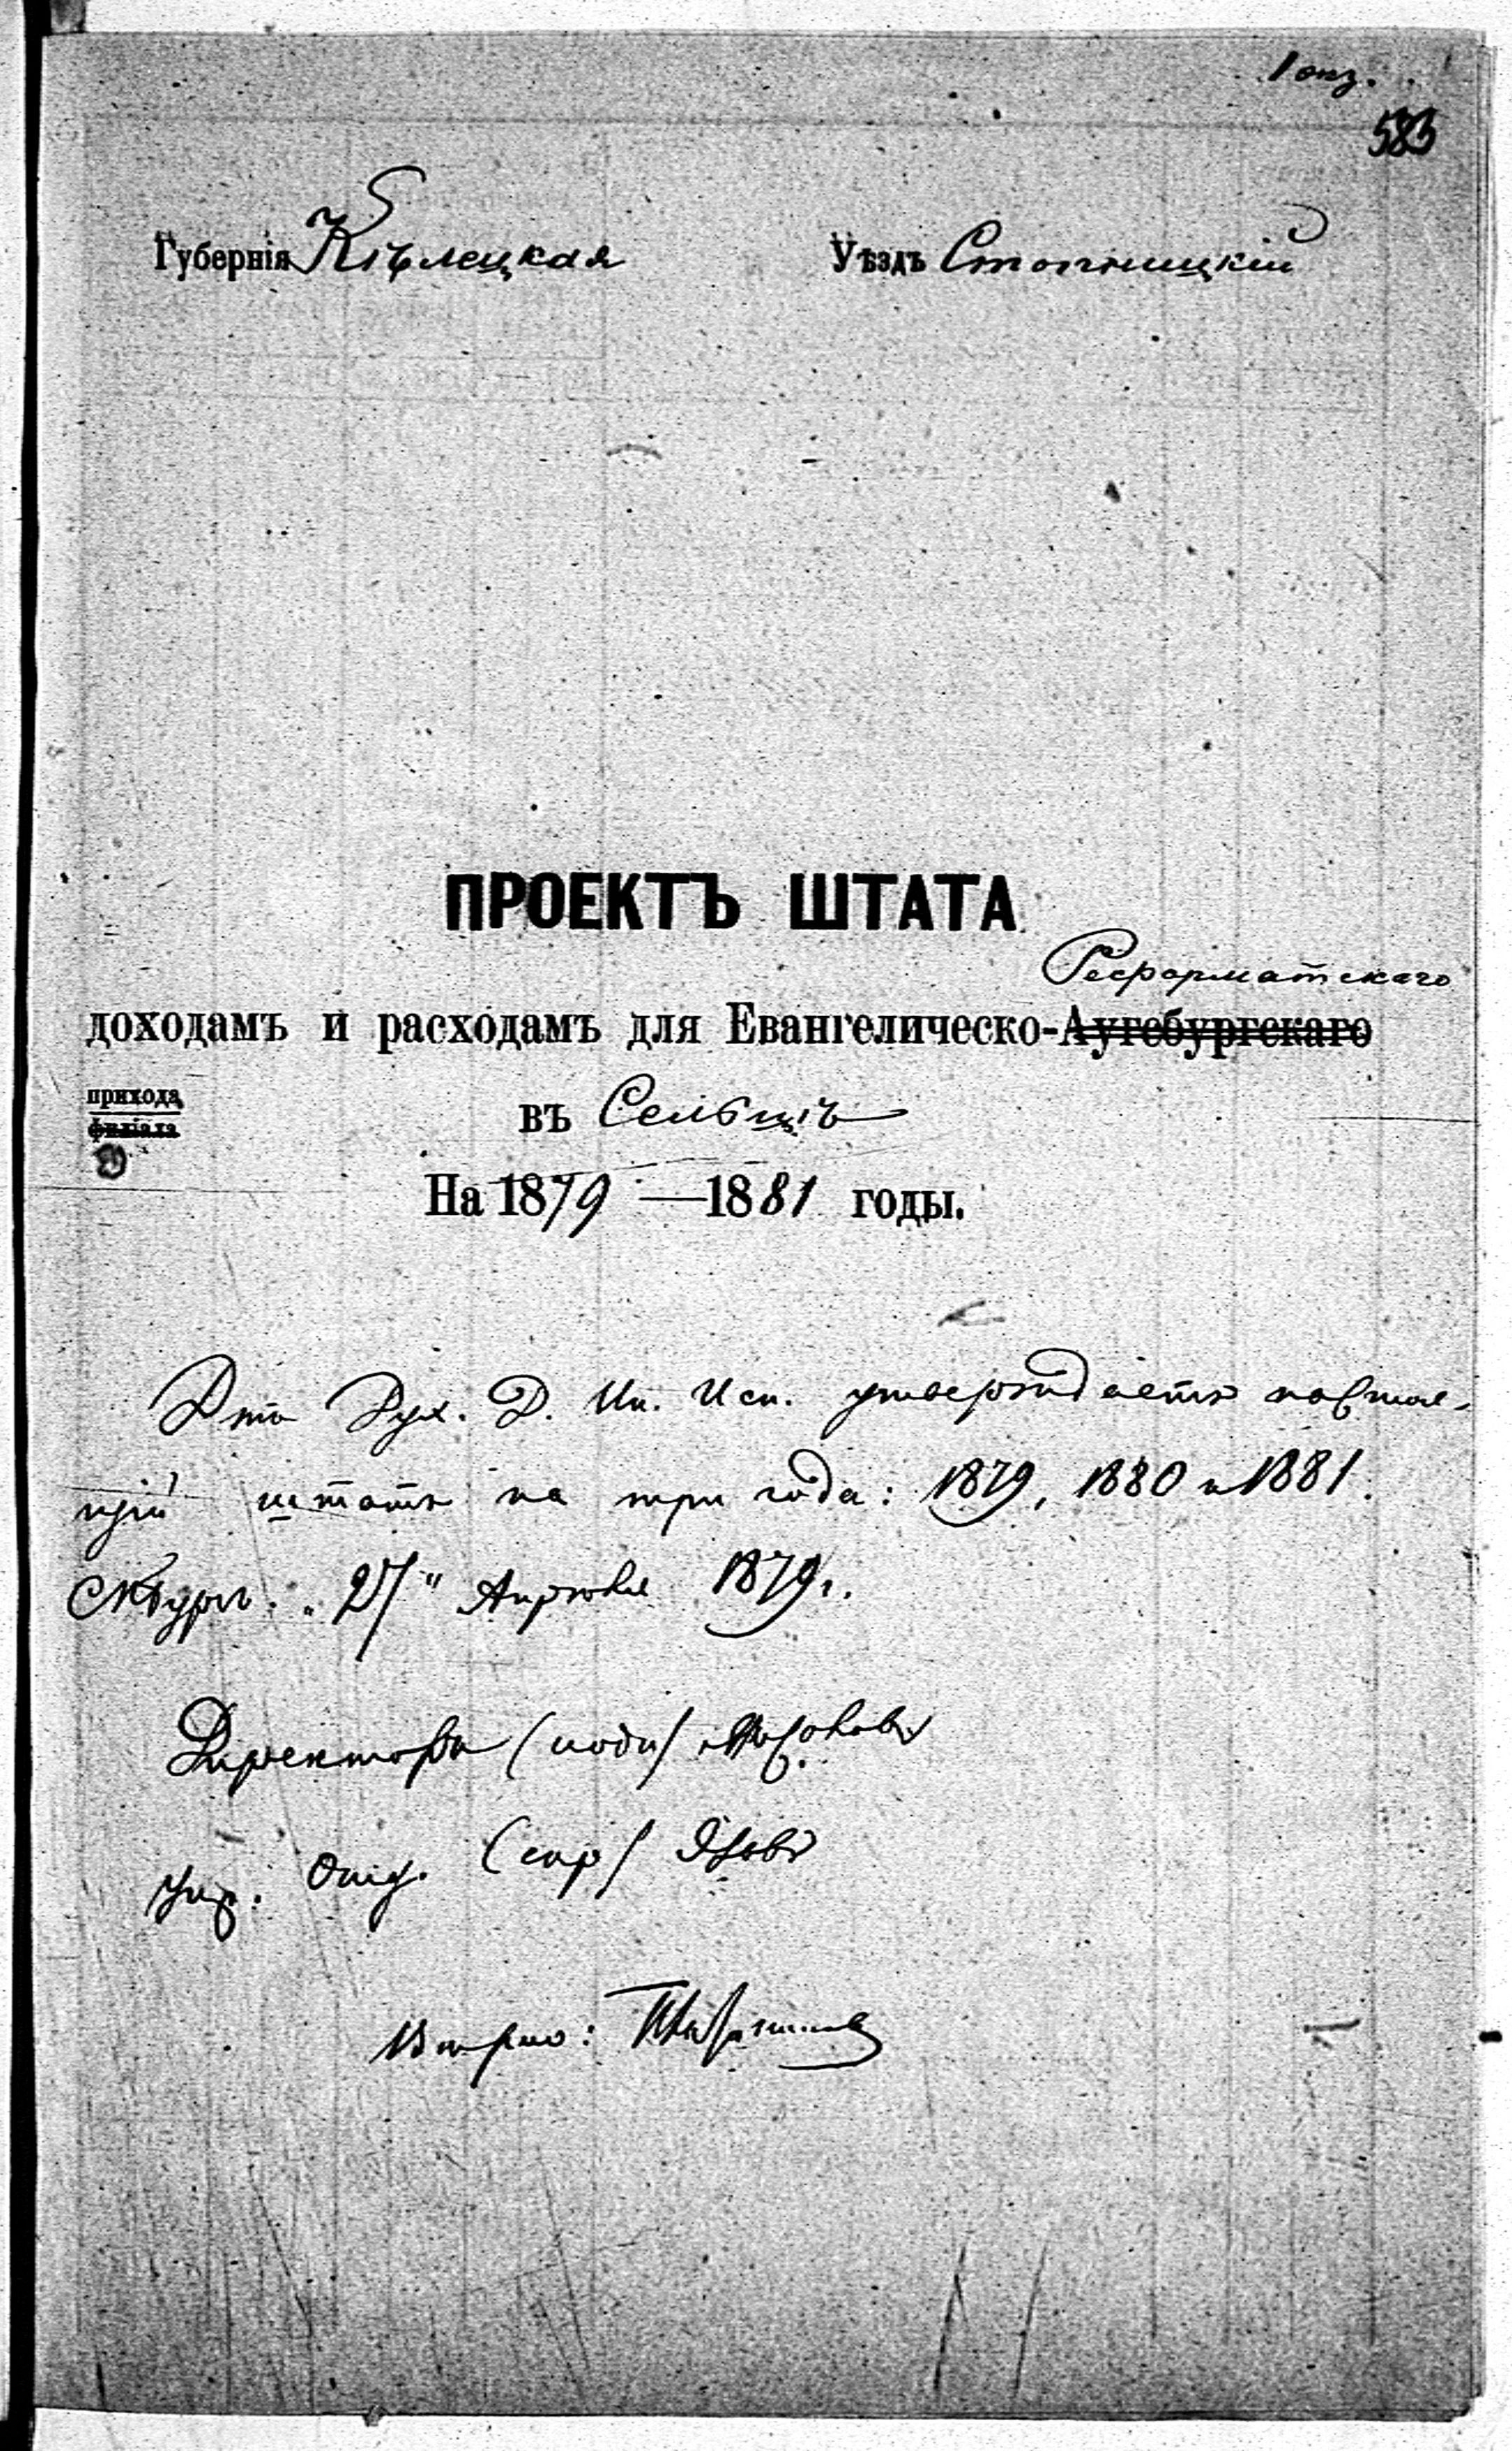 1 экз.
583
Губернія Кѣлецкая Уѣздъ Стопницкій
ПРОЕКТЪ ШТАТА
Реформатскаго
доходамъ и расходамъ для Евангелическо-Аугсбургскаго
прихода
филіала
въ Сельцѣ
На 1879 — 1881 годы.
Д-тъ Дух. Д. Ин. Исп. утверждаетъ настоя-
щій штатъ на три года: 1879, 1880 и 1881.
"27" Апрѣля 1879 г.
Директоръ (подп)
(скр)
Вѣрно: